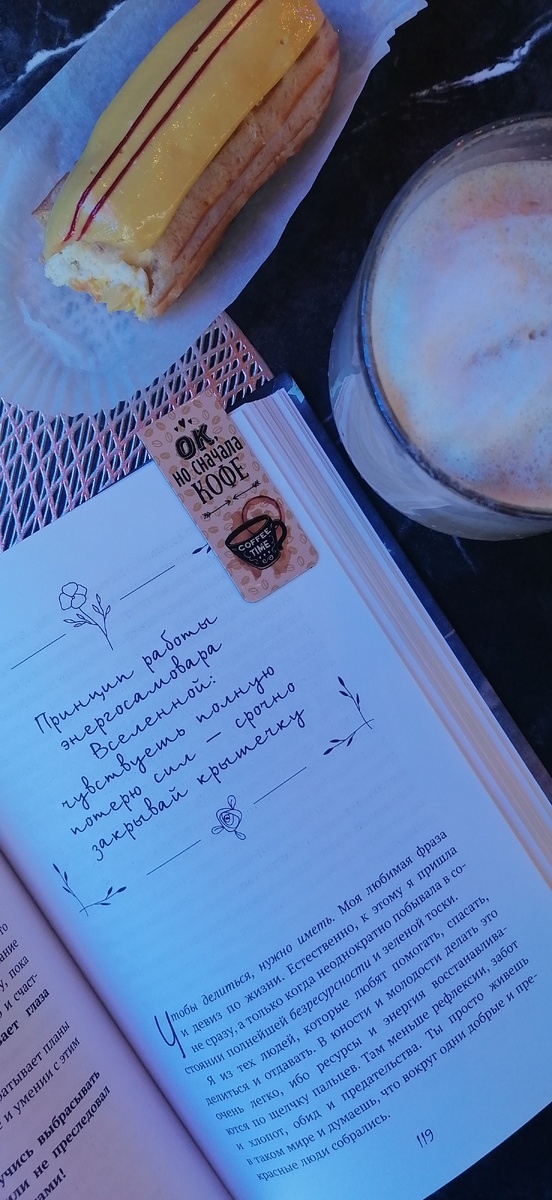 ОК,
но сначала
КОФЕ
COFFEE
TIME
Принцип работы
энергосамовара
Вселенной:
чувствуеть полную
потерю сил — срочно
закрывай крытечку
Чтобы делиться, нужно иметь. Моя любимая фраза
и девиз по жизни. Естественно, к этому я пришла
не сразу, а только когда неоднократно побывала в со-
стоянии полнейшей безресурсности и зеленой тоски.
Я из тех людей, которые любят помогать, спасать,
делиться и отдавать. В юности и молодости делать это
очень легко, ибо ресурсы и энергия восстанавлива-
ются по щелчку пальцев. Там меньше рефлексии, забот
и хлопот, обид и предательства. Ты просто живешь
в таком мире и думаешь, что вокруг одни добрые и пре-
красные люди собрались.
119
то
ание
у, пока
о и счаст-
вает глаза
батывает планы
е и умении с этим
учись выбрасывать
или не преследовал
ами!